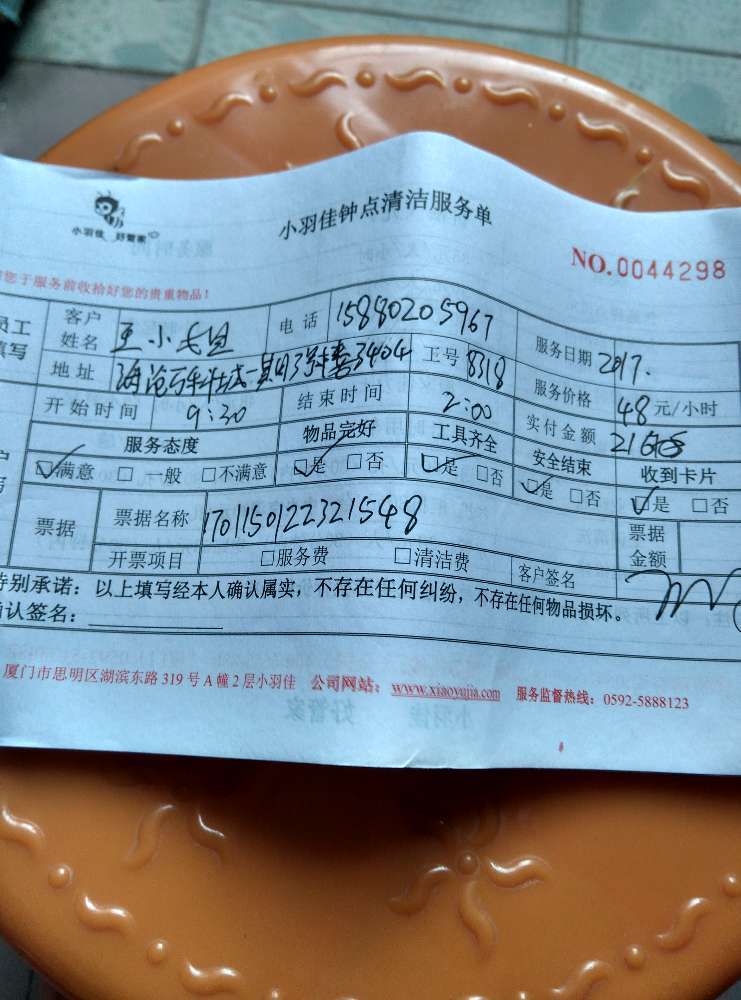 小羽佳 好管家
小羽佳钟点清洁服务单
NO.0044298
您于服务前收拾好您的贵重物品!
员工
填写
客户
姓名
王小姐
电话
15880205967
服务日期
2017.
地址
海沧万科城一期43号楼3404
工号
8318
服务价格
48元/小时
开始时间
9:30
结束时间
2:00
实付金额
服务态度
物品完好
工具齐全
安全结束
收到卡片
满意 一般 不满意
是 否
是 否
是 否
是 否
票据
票据名称
1701150122321548
票据
金额
开票项目
服务费
清洁费
客户签名
特别承诺:以上填写经本人确认属实,不存在任何纠纷,不存在任何物品损坏。
确认签名:
厦门市思明区湖滨东路319号A幢2层小羽佳 公司网站:www.xiaoyujia.com 服务监督热线:0592-5888123